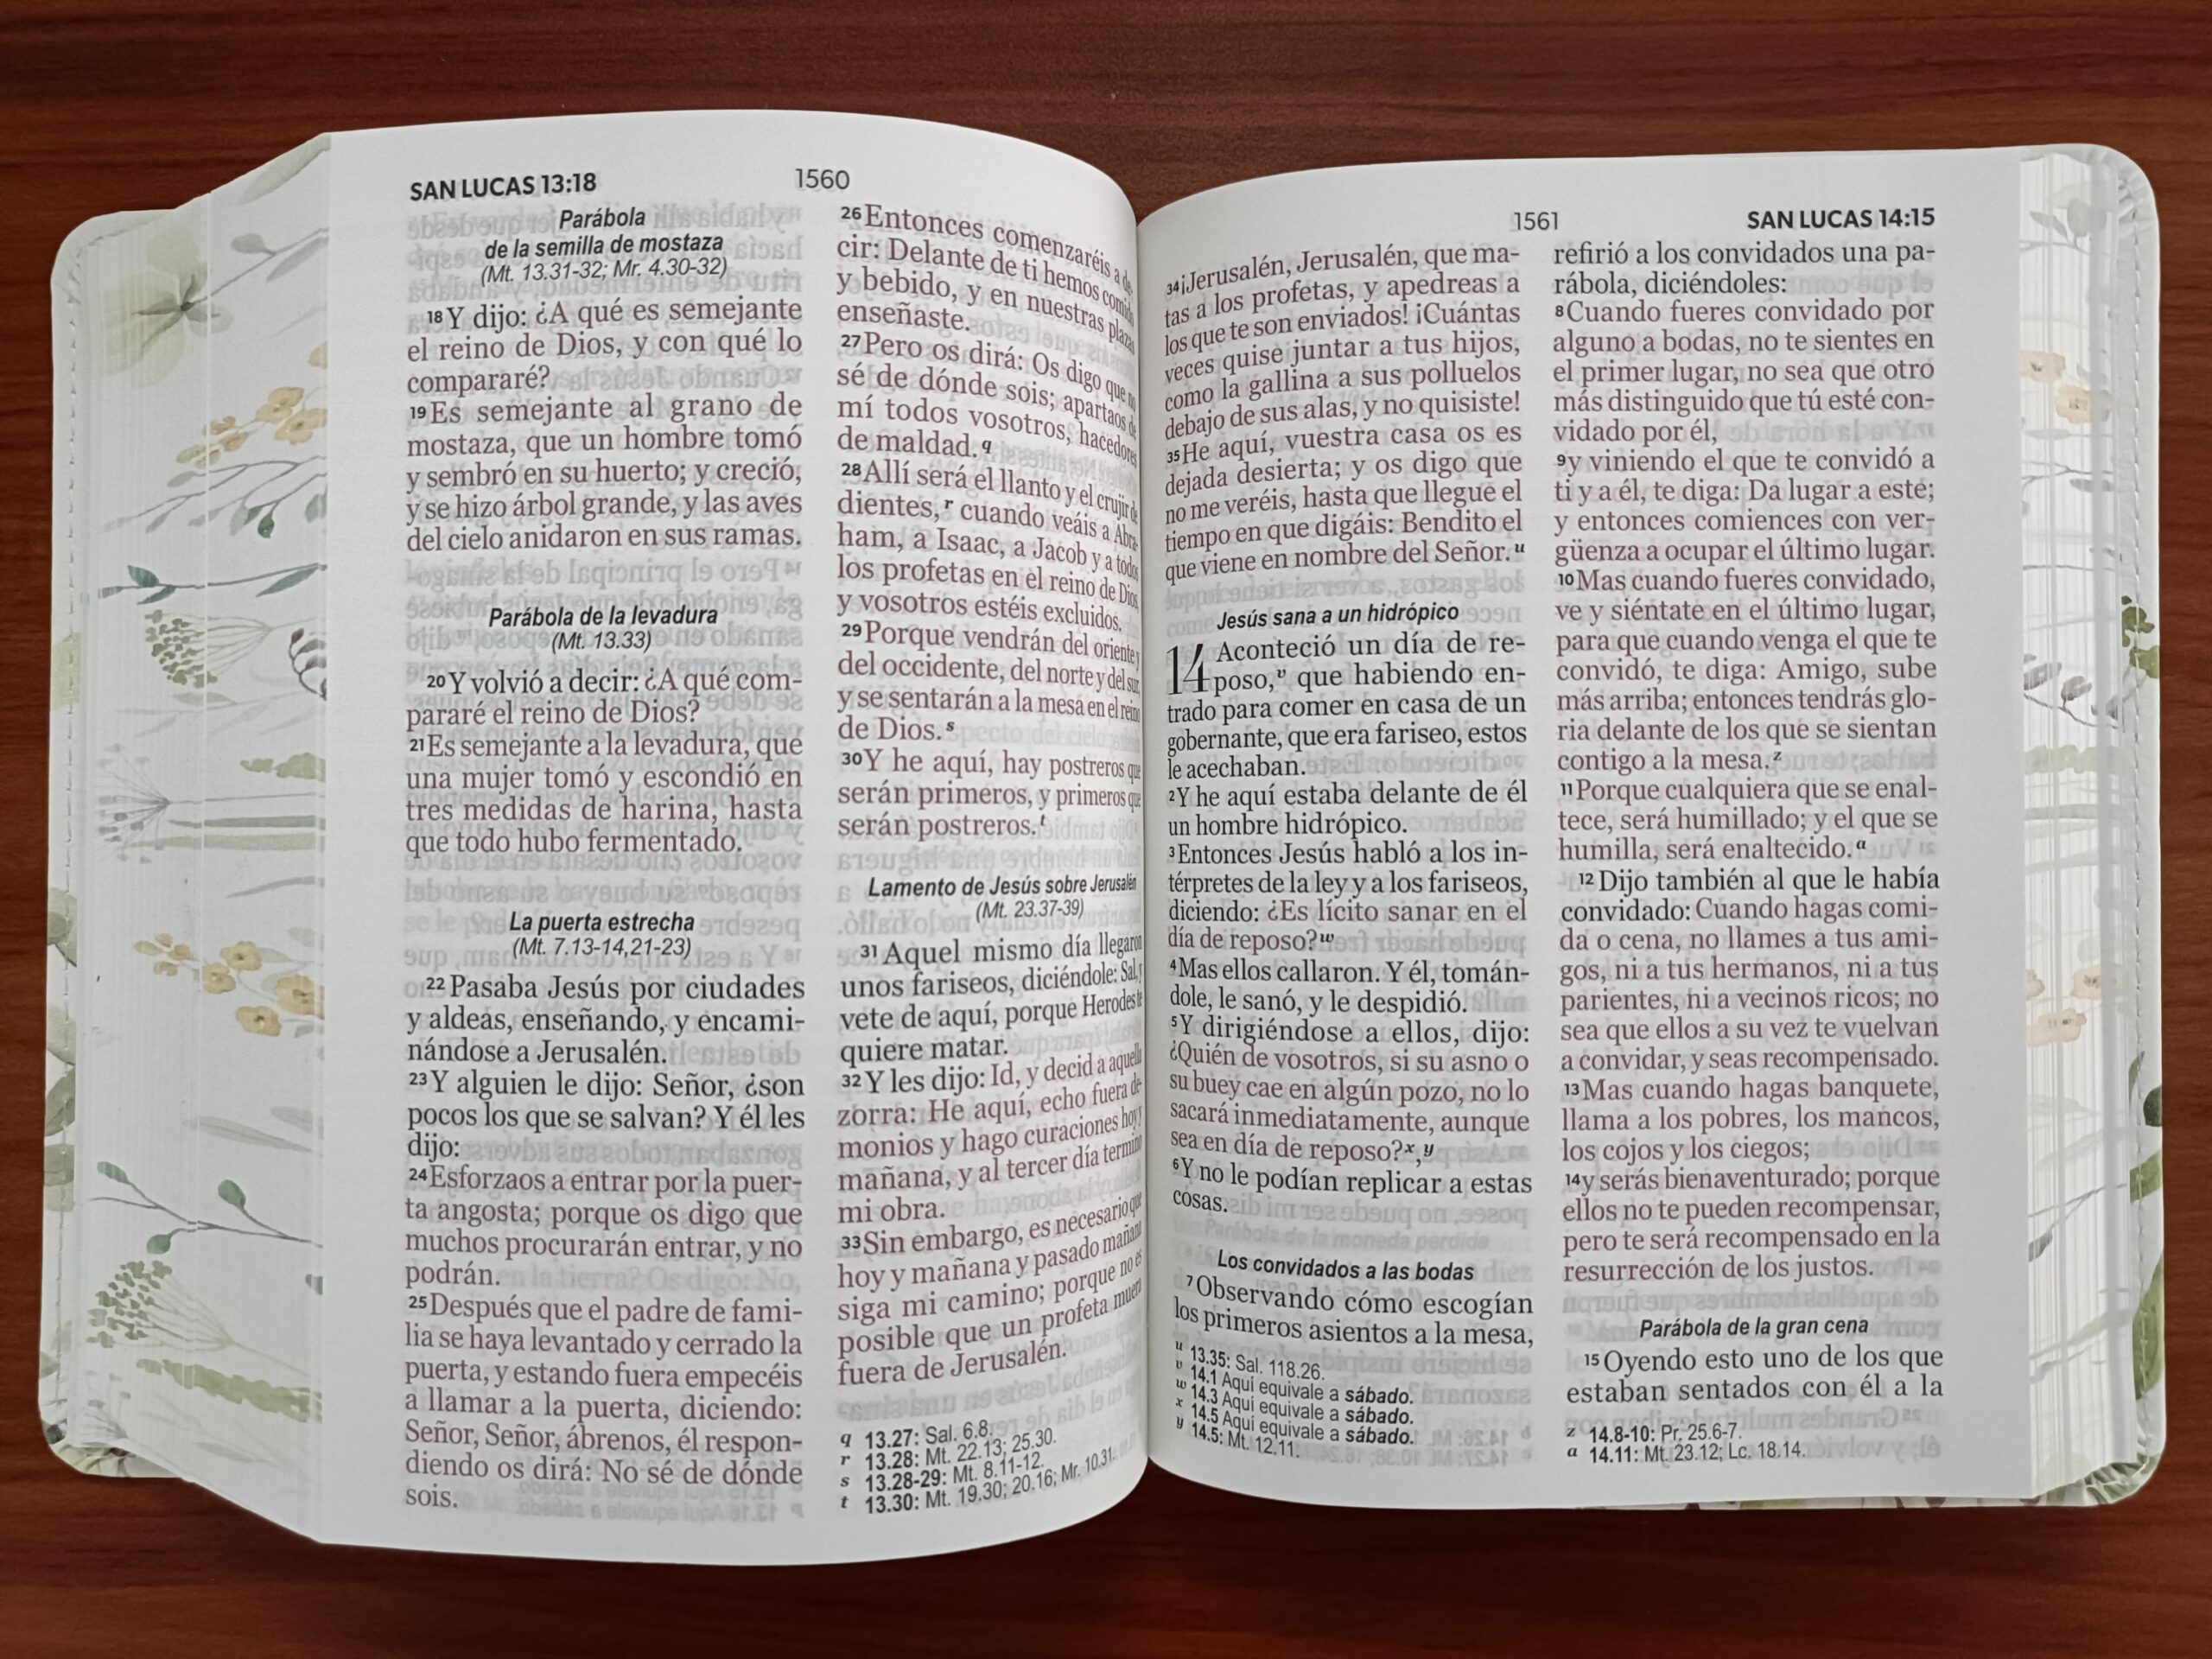 SAN LUCAS 13:18
1560
Parábola
de la semilla de mostaza
(Mt. 13.31-32; Mr. 4.30-32)
18Y dijo: ¿A qué es semejante
el reino de Dios, y con qué lo
compararé?
19Es semejante al grano de
mostaza, que un hombre tomó
y sembró en su huerto; y creció,
y se hizo árbol grande, y las aves
del cielo anidaron en sus ramas.
Parábola de la levadura
(Mt. 13.33)
20Y volvió a decir: ¿A qué com-
pararé el reino de Dios?
21Es semejante a la levadura, que
una mujer tomó y escondió en
tres medidas de harina, hasta
que todo hubo fermentado.
La puerta estrecha
(Mt. 7.13-14,21-23)
22Pasaba Jesús por ciudades
y aldeas, enseñando, y encami-
nándose a Jerusalén.
23Y alguien le dijo: Señor, ¿son
pocos los que se salvan? Y él les
dijo:
24Esforzaos a entrar por la puer-
ta angosta; porque os digo que
muchos procurarán entrar, y no
podrán.
25Después que el padre de fami-
lia se haya levantado y cerrado la
puerta, y estando fuera empecéis
a llamar a la puerta, diciendo:
Señor, Señor, ábrenos, él respon-
diendo os dirá: No sé de dónde
sois.
26Entonces comenzaréis a de-
cir: Delante de ti hemos comido
y bebido, y en nuestras plazas
enseñaste.
27Pero os dirá: Os digo que no
sé de dónde sois; apartaos de
mí todos vosotros, hacedores
de maldad.q
28Allí será el llanto y el crujir de
dientes,r cuando veáis a Abra-
ham, a Isaac, a Jacob y a todos
los profetas en el reino de Dios,
y vosotros estéis excluidos.
29Porque vendrán del oriente y
del occidente, del norte y del sur,
y se sentarán a la mesa en el reino
de Dios.s
30Y he aquí, hay postreros que
serán primeros, y primeros que
serán postreros.t
Lamento de Jesús sobre Jerusalén
(Mt. 23.37-39)
31Aquel mismo día llegaron
unos fariseos, diciéndole: Sal, y
vete de aquí, porque Herodes te
quiere matar.
32Y les dijo: Id, y decid a aquella
zorra: He aquí, echo fuera de-
monios y hago curaciones hoy y
mañana, y al tercer día termino
mi obra.
33Sin embargo, es necesario que
hoy y mañana y pasado mañana
siga mi camino; porque no es
posible que un profeta muera
fuera de Jerusalén.
q 13.27: Sal. 6.8.
r 13.28: Mt. 22.13; 25.30.
s 13.28-29: Mt. 8.11-12.
t 13.30: Mt. 19.30; 20.16; Mr. 10.31.
1561
SAN LUCAS 14:15
34¡Jerusalén, Jerusalén, que ma-
tas a los profetas, y apedreas a
los que te son enviados! ¡Cuántas
veces quise juntar a tus hijos,
como la gallina a sus polluelos
debajo de sus alas, y no quisiste!
35He aquí, vuestra casa os es
dejada desierta; y os digo que
no me veréis, hasta que llegue el
tiempo en que digáis: Bendito el
que viene en nombre del Señor.u
Jesús sana a un hidrópico
14 Aconteció un día de re-
poso,v que habiendo en-
trado para comer en casa de un
gobernante, que era fariseo, estos
le acechaban.
2Y he aquí estaba delante de él
un hombre hidrópico.
3Entonces Jesús habló a los in-
térpretes de la ley y a los fariseos,
diciendo: ¿Es lícito sanar en el
día de reposo?w
4Mas ellos callaron. Y él, tomán-
dole, le sanó, y le despidió.
5Y dirigiéndose a ellos, dijo:
¿Quién de vosotros, si su asno o
su buey cae en algún pozo, no lo
sacará inmediatamente, aunque
sea en día de reposo?x,y
6Y no le podían replicar a estas
cosas.
Los convidados a las bodas
7Observando cómo escogían
los primeros asientos a la mesa,
u 13.35: Sal. 118.26.
v 14.1 Aquí equivale a sábado.
w 14.3 Aquí equivale a sábado.
x 14.5 Aquí equivale a sábado.
y 14.5: Mt. 12.11.
refirió a los convidados una pa-
rábola, diciéndoles:
8Cuando fueres convidado por
alguno a bodas, no te sientes en
el primer lugar, no sea que otro
más distinguido que tú esté con-
vidado por él,
9y viniendo el que te convidó a
ti y a él, te diga: Da lugar a este;
y entonces comiences con ver-
güenza a ocupar el último lugar.
10Mas cuando fueres convidado,
ve y siéntate en el último lugar,
para que cuando venga el que te
convidó, te diga: Amigo, sube
más arriba; entonces tendrás glo-
ria delante de los que se sientan
contigo a la mesa.z
11Porque cualquiera que se enal-
tece, será humillado; y el que se
humilla, será enaltecido.a
12Dijo también al que le había
convidado: Cuando hagas comi-
da o cena, no llames a tus ami-
gos, ni a tus hermanos, ni a tus
parientes, ni a vecinos ricos; no
sea que ellos a su vez te vuelvan
a convidar, y seas recompensado.
13Mas cuando hagas banquete,
llama a los pobres, los mancos,
los cojos y los ciegos;
14y serás bienaventurado; porque
ellos no te pueden recompensar,
pero te será recompensado en la
resurrección de los justos.
Parábola de la gran cena
15Oyendo esto uno de los que
estaban sentados con él a la
z 14.8-10: Pr. 25.6-7.
a 14.11: Mt. 23.12; Lc. 18.14.